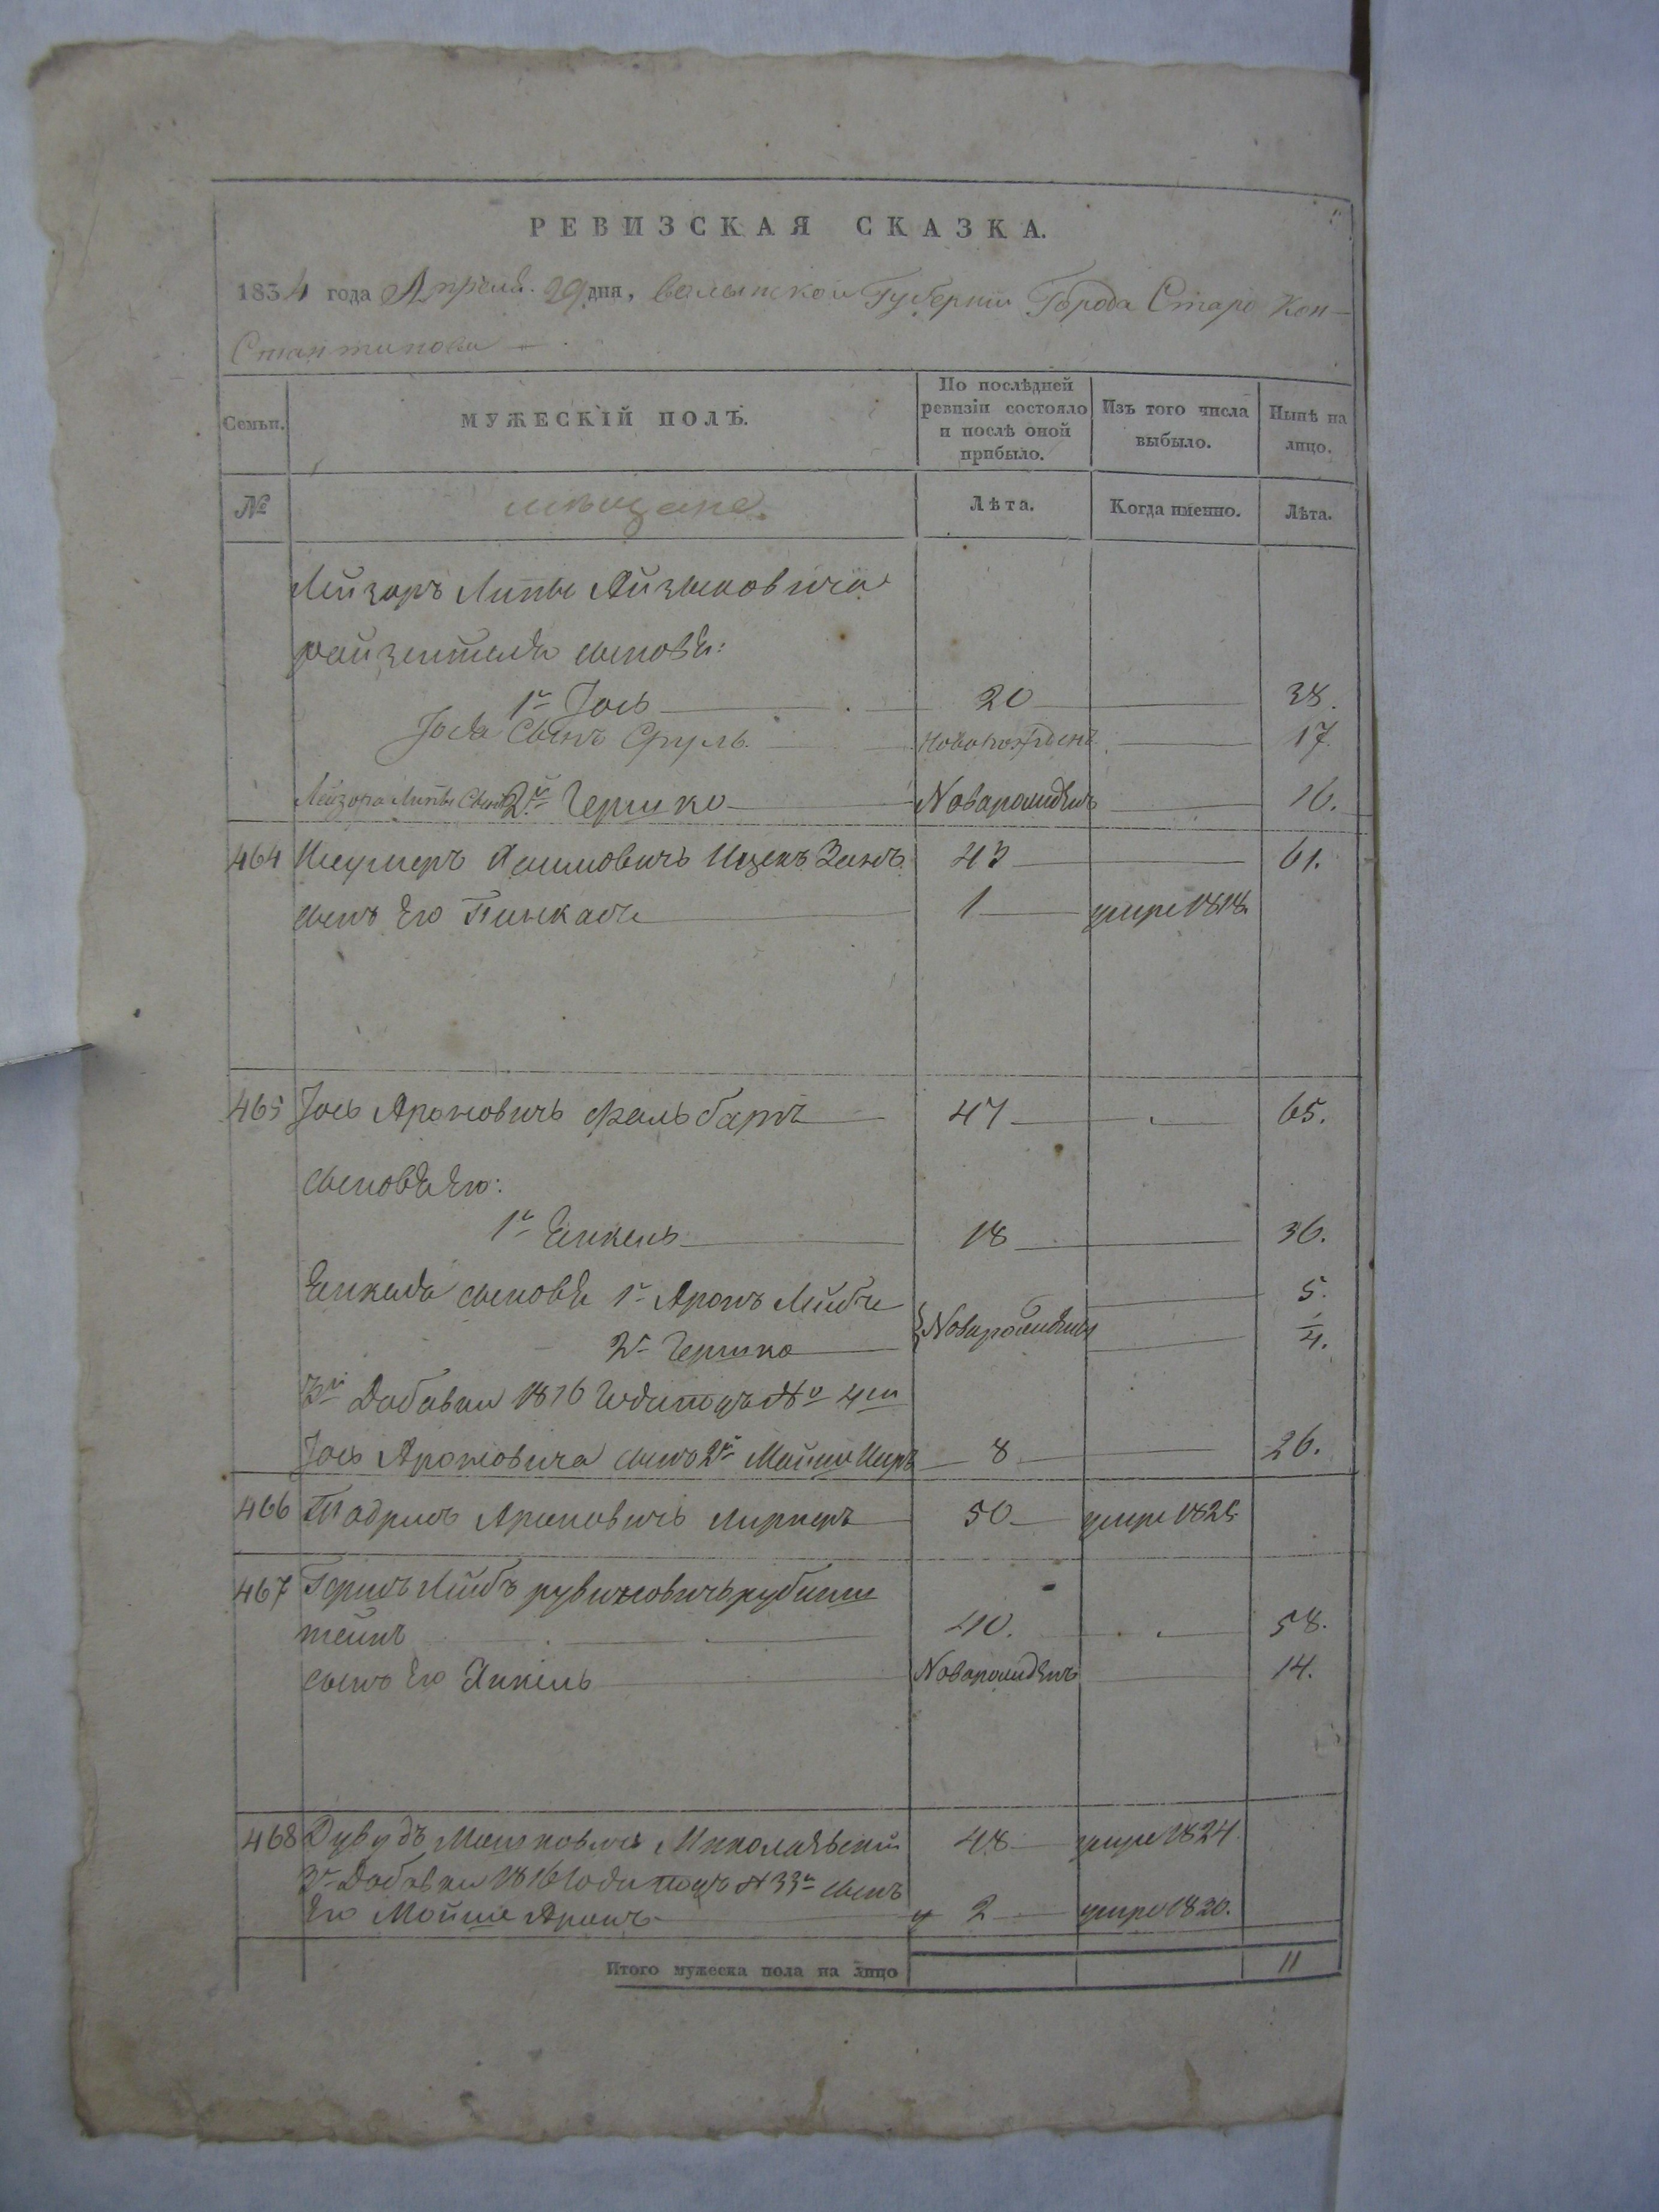 РЕВИЗСКАЯ СКАЗКА.
1834 года Апреля 29 дня, Волынской Губернии Города Старо Кон-
стантинова
Семьи. МУЖЕСКІЙ ПОЛЪ. По послѣдней ревизіи состояло и послѣ оной прибыло. Изъ того числа выбыло. Нынѣ на лицо.
№ мѣщане. Лѣта. Когда именно. Лѣта.
Лейзоръ Липы Айзыковича
сыновя:
1й Іось 20 38.
Іося Сынъ Сруль. Новорожденъ 17
Лейзора Липы Сынъ 2й Гершко Новарожденъ 16.
464 Хаимовичъ 43 61.
сынъ Его Пинкасъ 1 умре 1818.
465 Іось Ароновичъ Фальбартъ 47 65.
сыновя Его:
1й Енкель 18 36.
Енкеля сыновя 1й Аронъ Лейбъ 5.
2й Гершко Новарожденны 4.
Зъ Добавки 1816 Года подъ № 4м
Іось Ароновича сынъ 2й Мойше 8 26.
466 Ароновичъ 50 умре 1825
467 Гершъ Лейбъ рувиновичъ рубинш
тейнъ 40. 58.
сынъ Его Янкель Новарожденъ 14.
468 Дувидъ Мошковичъ Николаевскій 48 умре 1824.
Зъ Добавки 1816 Года подъ № 33м сынъ
Его Мойше Аронъ 2 умре 1820.
Итого мужеска пола на лицо 11